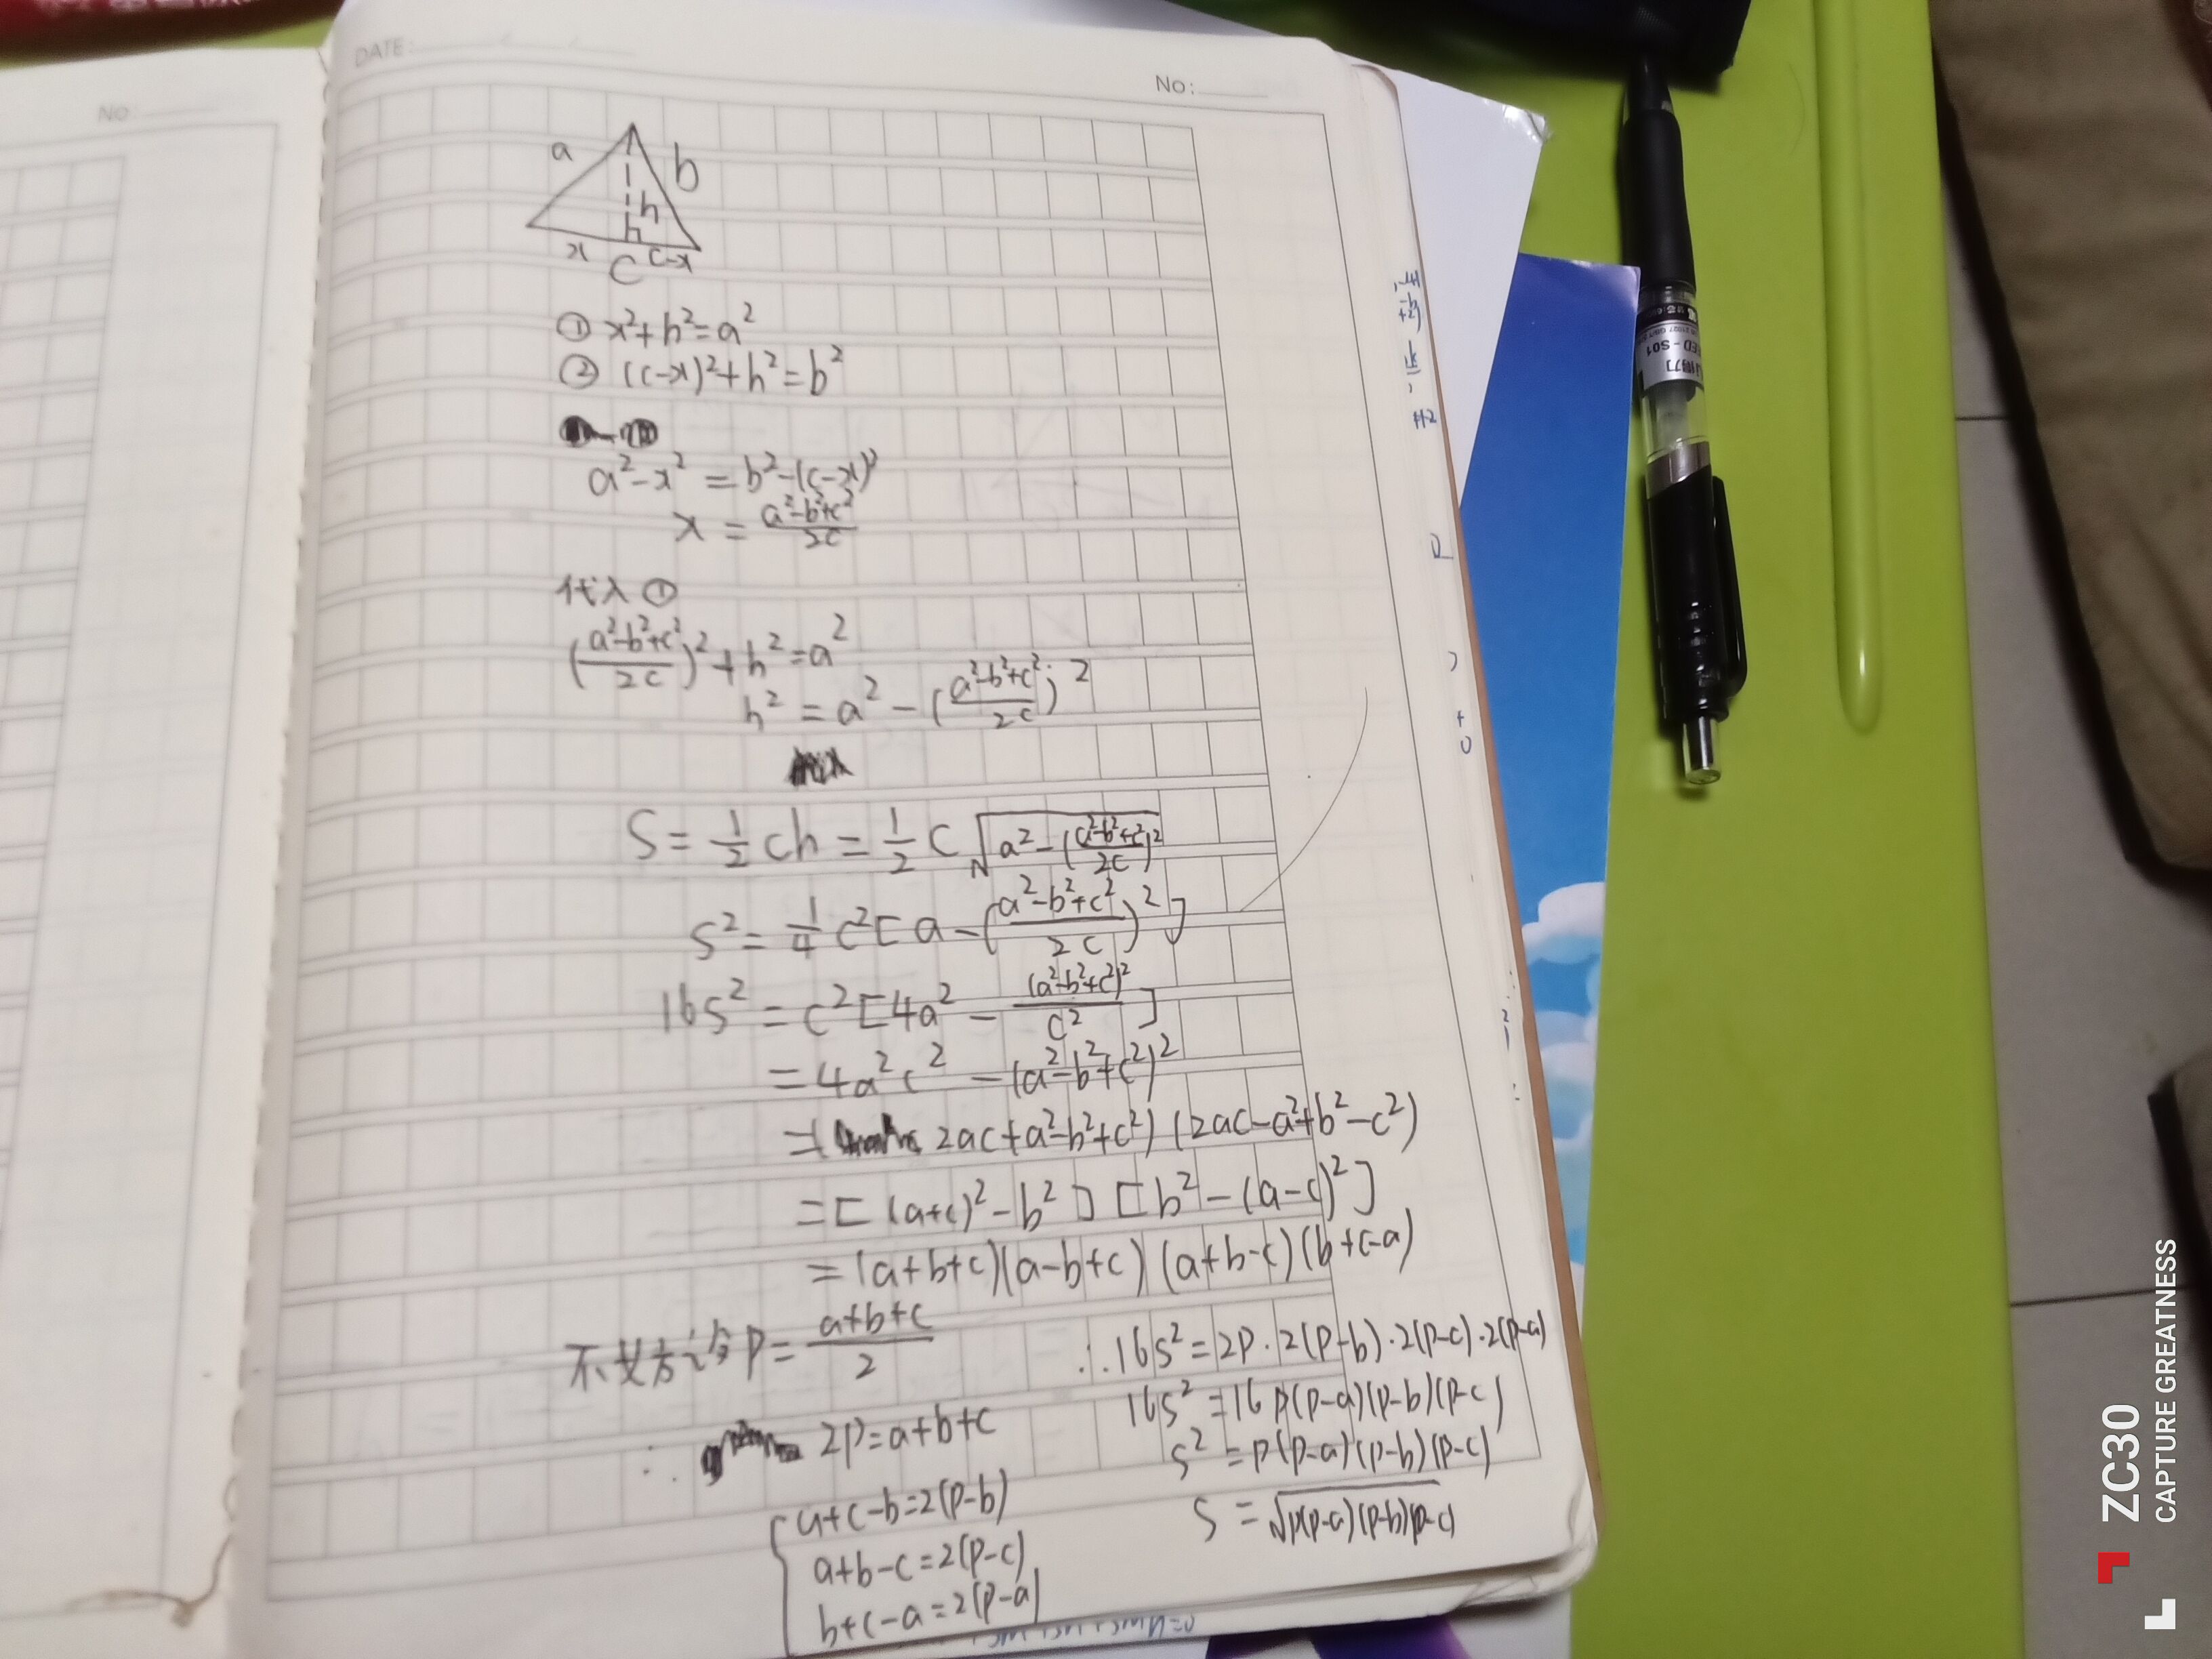 DATE:
No:
No:
a
b
h
x
C
c-x
① x²+h²=a²
② (c-x)²+h²=b²
a²-x²=b²-(c-x)²
x=\frac{a²-b²+c²}{2c}
代入①
(\frac{a²-b²+c²}{2c})²+h²=a²
h²=a²-(\frac{a²-b²+c²}{2c})²
S=\frac{1}{2}ch=\frac{1}{2}c\sqrt{a²-(\frac{a²-b²+c²}{2c})²}
S²=\frac{1}{4}c²[a-(\frac{a²-b²+c²}{2c})²]
16S²=c²[4a²-\frac{(a²-b²+c²)²}{c²}]
=4a²c²-(a²-b²+c²)²
=(2ac+a²-b²+c²)(2ac-a²+b²-c²)
=[(a+c)²-b²][b²-(a-c)²]
=(a+b+c)(a-b+c)(a+b-c)(b+c-a)
不妨令p=\frac{a+b+c}{2}
∴ 2p=a+b+c
{a+c-b=2(p-b)
a+b-c=2(p-c)
b+c-a=2(p-a)
∴16S²=2p·2(p-b)·2(p-c)·2(p-a)
16S²=16p(p-a)(p-b)(p-c)
S²=p(p-a)(p-b)(p-c)
S=\sqrt{p(p-a)(p-b)(p-c)}
S01
ZC30
CAPTURE GREATNESS